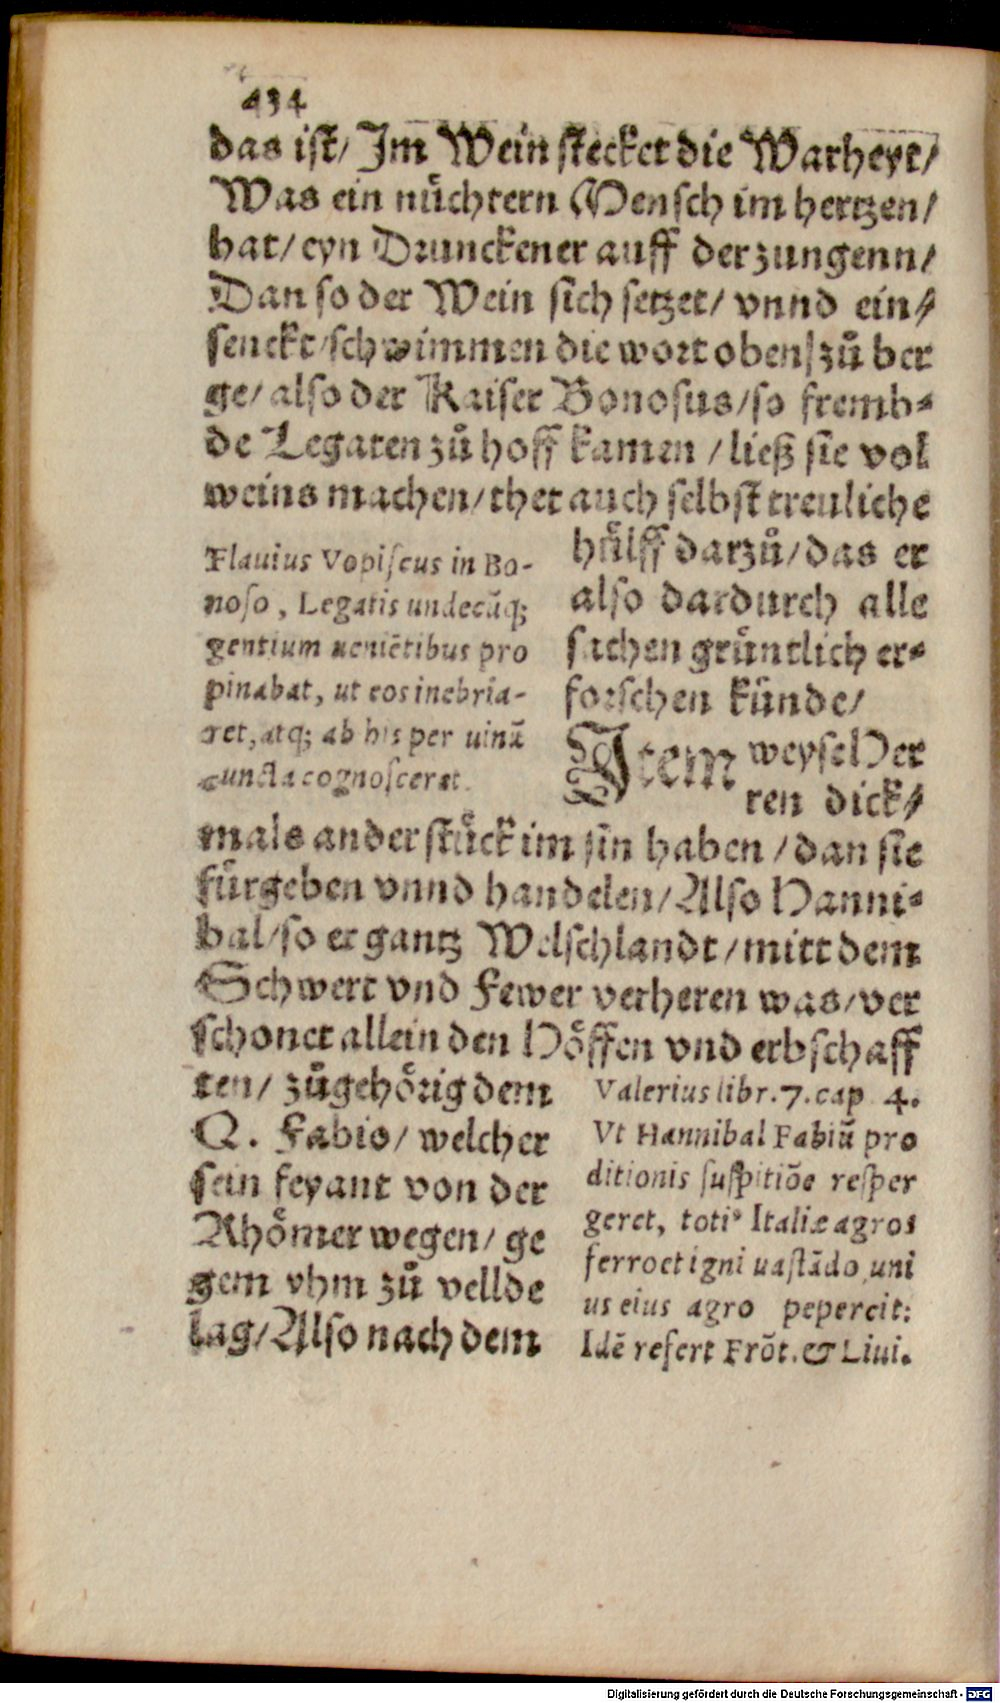 434
das ist/ Im Wein stecket die Warheyt/
Was ein nüchtern Mensch im hertzen/
hat/ eyn Drunckener auff der zungenn/
Dan so der Wein sich setzet/ vnnd ein⸗
senckt/ schwimmen die wort oben zů ber
ge/ also der Kaiser Bonosus/ so fremb⸗
de Legaten zů hoff kamen / ließ sie vol
weins machen/ thet auch selbst treuliche
hülff darzů/ das er
also dardurch alle
sachen gründtlich er⸗
forschen künde/
Flauius Vopiſcus in Bo-
noso, Legatis undecũq;
gentium ueniẽtibus pro
pinabat, ut eos inebria-
ret, atq; ab his per uinũ
cuncta cognosceret.
Item weyse Her
ren dick⸗
mals ander stück im sin haben / dan sie
fürgeben vnnd handelen/ Also Hanni⸗
bal/ so er gantz Welschlandt / mitt dem
Schwert vnd Fewer verheren was/ ver
schonet allein den Höffen vnd erbschaff
ten/ zůgehörig dem
Q. Fabio/ welcher
sein feyant von der
Rhömer wegen/ ge
gem yhm zů vellde
lag/ Also nach dem
Valerius libr. 7. cap 4.
Vt Hannibal Fabiũ pro
ditionis suspitiõe resper
geret, totiꝰ Italiæ agros
ferro et igni uastãdo, uni
us eius agro pepercit:
Idẽ refert Frõt. & Liui.
Digitalisierung gefördert durch die Deutsche Forschungsgemeinschaft - DFG